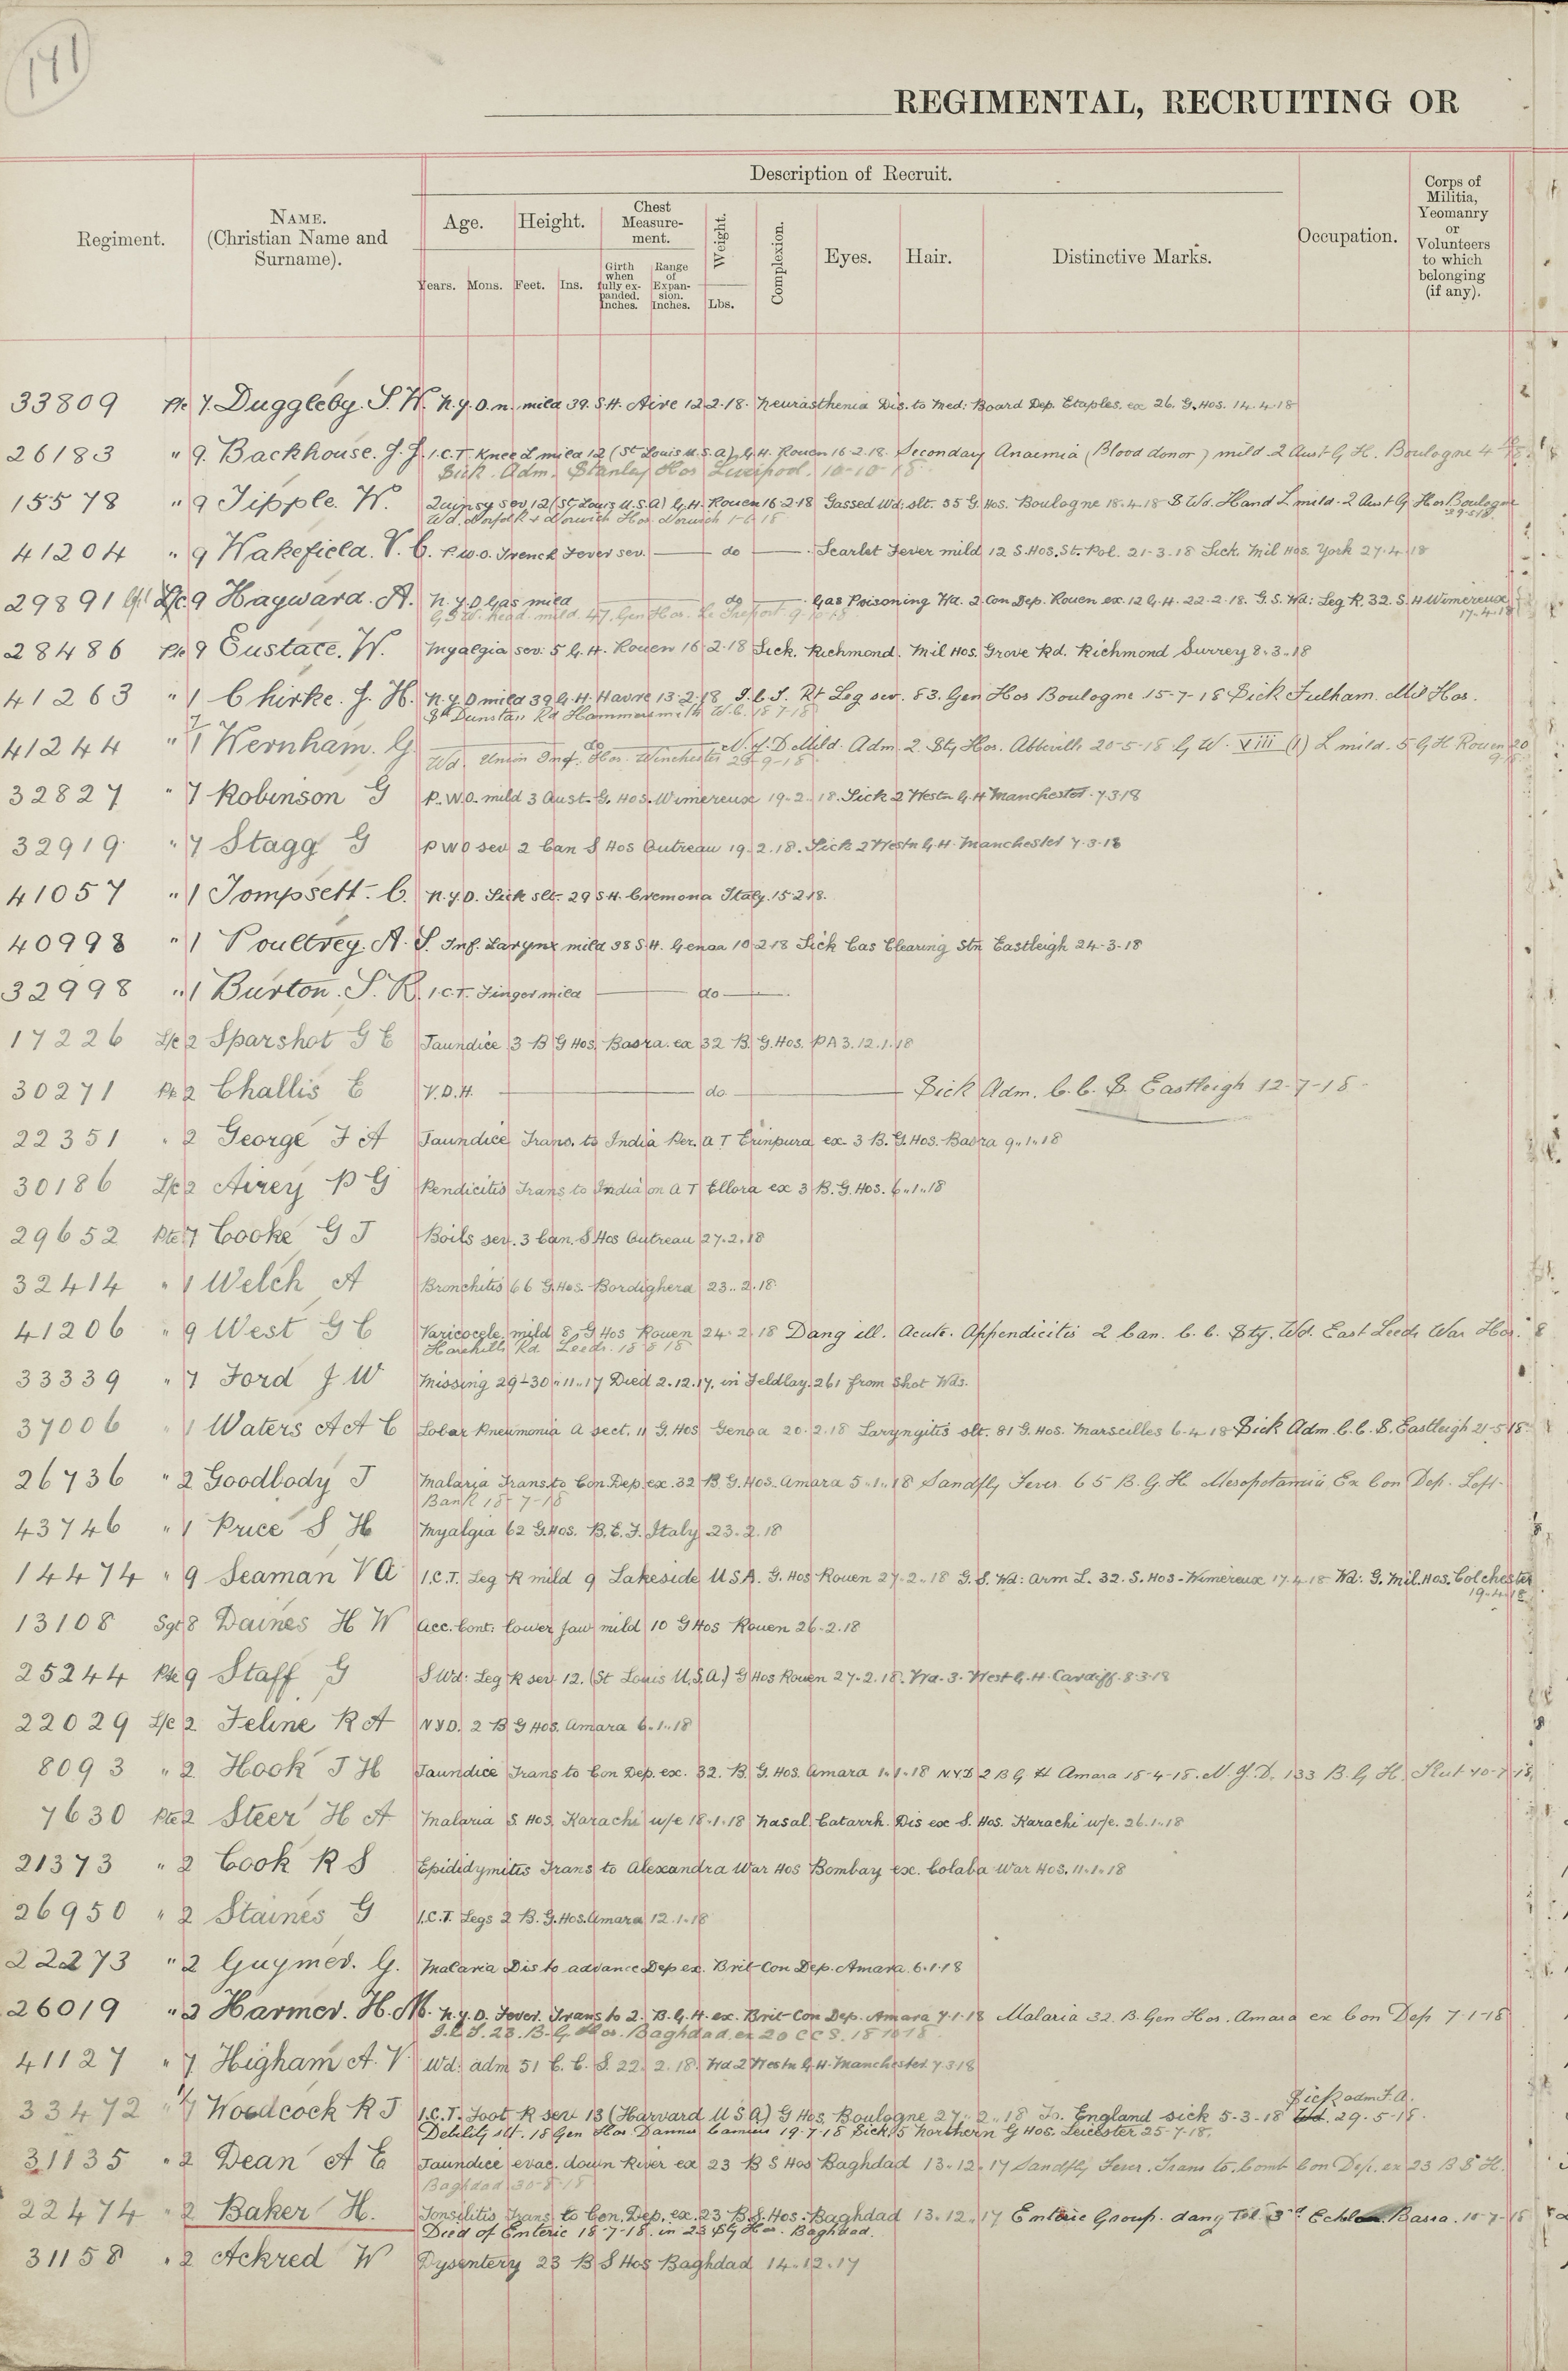 141
REGIMENTAL, RECRUITING OR
Description of Recruit.
Regiment.
NAME.
(Christian Name and
Surname).
Age.
Height.
Chest
Measure-
ment.
Weight.
Complexion.
Eyes.
Hair.
Distinctive Marks.
Occupation.
Corps of
Militia,
Yeomanry
or
Volunteers
to which
belonging
(if any).
Years.
Mons.
Feet.
Ins.
Girth
when
fully ex-
panded.
Inches.
Range
of
Expan-
sion.
Inches.
Lbs.
33809 Pte 7. Duggleby. S. W. N.Y.D.n. mild 39. S.H. Aire 12.2.18. Neurasthenia Dis. to Med: Board Dep. Etaples. ex 26. G. Hos. 14.4.18
26183 " 9. Backhouse. J. J. I.C.T. Knee L mild 12 (St Louis U.S.A) G.H. Rouen 16.2.18. Seconday Anaemia (Blood donor) mild. 2 Aust G H. Boulogne
Sick. Adm. Stanley Hos Liverpool. 10-10-18
15578 " 9 Tipple. W. Quinsy sev. 12 (St Louis U.S.A) G.H. Rouen 16.2.18 Gassed Wd: slt. 35 G. Hos. Boulogne 18.4.18 S Wd. Hand L mild. 2 Aust G Hos Boulogne
29-5-18
Wd. Norfolk & Norwich Hos Norwich 1-6-18
41204 " 9 Wakefield. V. C. P.U.O. Trench Fever sev. — do — Scarlet Fever mild 12 S. Hos. St. Pol. 21-3-18 Sick. Mil Hos. York 27.4.18
29891 L/c. 9 Hayward. A. N.Y.D Gas mild — do — Gas Poisoning Wd. 2 Con Dep. Rouen ex. 12 G.H. 22.2.18. G.S. Wd: Leg R. 32. S.H Wimereux
17.4.18
G.S.W. head. mild. 47. Gen Hos. Le Treport
28486 Pte 9 Eustace. W. Myalgia sev: 5 G.H. Rouen 16.2.18 Sick. Richmond. Mil Hos. Grove Rd. Richmond Surrey 8.3.18
41263 " 1 Chirke. J. H. N.Y.D mild 39 G.H. Havre 13.2.18 I.C.T. Rt Leg sev. 83. Gen Hos Boulogne 15-7-18 Sick Fulham. Mil Hos.
St Dunstan Rd Hammersmith W.6. 18 7 18
41244 " 7 Wernham. G — do — N.Y.D Mild. Adm. 2. Sty Hos. Abbeville 20-5-18 G W. VIII (1) L mild. 5 G H Rouen 20
Wd. Union Inf. Hos. Winchester 25-9-18
32827 " 7 Robinson G P.U.O. mild 3 Aust. G. Hos. Wimereux 19.2.18. Sick 2 Westn G.H Manchester. 7 3 18
32919 " 7 Stagg G P U O sev 2 Can S Hos Outreau 19.2.18. Sick 2 Westn G.H. Manchester 7.3.18
41057 " 1 Tompsett. C. N.Y.D. Sick slt. 29 S.H. Cremona Italy. 15.2.18.
40998 " 1 Poultrey. A. S. Inf. Larynx mild 38 S.H. Genoa 10 2 18 Sick Cas Clearing Stn Eastleigh 24-3-18
32998 " 1 Burton. S. R. I.C.T. Finger mild — do —
17226 L/c 2 Sparshot G E Jaundice 3 B G Hos. Basra. ex 32 B. G. Hos. PA 3. 12.1.18
30271 Pte 2 Challis E V.D.H. — do. — Sick Adm. C.C.S. Eastleigh 12-7-18
22351 " 2 George F A Jaundice Trans. to India Per. A T Erinpura ex. 3 B. G. Hos. Basra 9.1.18
30186 L/c 2 Airey P G Pendicitis Trans to India on A T Ellora ex 3 B. G. Hos. 6.1.18
29652 Pte 7 Cooke G J Boils sev. 3 Can. S Hos Outreau 27.2.18
32414 " 1 Welch A Bronchitis 66 G. Hos. Bordighera 23.2.18
41206 " 9 West G C Varicocele mild 8 G Hos Rouen 24.2.18 Dang ill. Acute. Appendicitis 2 Can. C. C. Sty. Wd. East Leeds War Hos.
Harehills Rd Leeds. 18 8 18
33339 " 7 Ford J W Missing 29-30.11.17 Died 2.12.17. in Feldlaz. 261 from Shot Wds.
37006 " 1 Waters A A C Lobar Pneumonia A sect. 11 G. Hos Genoa 20.2.18 Laryngitis slt. 81 G. Hos. Marseilles 6.4.18 Sick Adm. C.C.S. Eastleigh 21-5-18
26736 " 2 Goodbody J Malaria Trans. to Con. Dep. ex. 32 B. G. Hos. Amara 5.1.18 Sandfly Fever 65 B. G. H. Mesopotamia Ex Con Dep. Left.
Bank 18-7-18
43746 " 1 Price S H Myalgia 62 G. Hos. B.E.F. Italy 23.2.18
14474 " 9 Seaman V A I.C.T. Leg R mild 9 Lakeside U S A. G. Hos Rouen 27.2.18 G.S. Wd: Arm L. 32. S. Hos. Wimereux 17.4.18 Wd: G. Mil. Hos. Colchester
19.4.18
13108 Sgt 8 Daines H W Acc. Cont: Lower Jaw mild 10 G Hos Rouen 26.2.18
25244 Pte 9 Staff G S Wd: Leg R sev 12. (St Louis U.S.A.) G Hos Rouen 27.2.18. Wd. 3. West G.H. Cardiff. 8.3.18
22029 L/c 2 Feline R A NYD. 2 B G Hos. Amara 6.1.18
8093 " 2 Hook J H Jaundice Trans to Con Dep. ex. 32. B. G. Hos. Amara 1.1.18 N.Y.D 2 B G H Amara 18-4-18. N.Y.D. 133 B. G. H. Kut
7630 Pte 2 Steer H A Malaria S. Hos. Karachi w/e 18.1.18 Nasal Catarrh. Dis ex S. Hos. Karachi w/e. 26.1.18
21373 " 2 Cook R S Epididymitis Trans to Alexandra War Hos Bombay ex. Colaba War Hos. 11.1.18
26950 " 2 Staines G I.C.T. Legs 2 B. G. Hos. Amara 12.1.18
22273 " 2 Guymer. G. Malaria Dis to advance Dep ex. Brit Con Dep. Amara. 6.1.18
26019 " 2 Harmer. H. M. N.Y.D. Fever. Trans to 2. B. G. H. ex. Brit Con Dep. Amara 7.1.18 Malaria 32. B. Gen Hos. Amara ex Con Dep 7-1-18
I.C.T. 23. B. G. Hos. Baghdad. ex 20 CCS. 18 10 18
41127 " 7 Higham A. V. Wd: adm 51 C.C.S. 22.2.18. Wd 2 Westn G.H. Manchester. 7 3 18
Sick adm F.A.
33472 " 1/7 Woodcock R J I.C.T. Foot R sev 13 (Harvard U S A) G Hos. Boulogne 27.2.18 To. England sick 5-3-18 Wd. 29-5-18.
Debility slt. 18 Gen Hos. Dannes Camiers 19-7-18 Sick 5 Northern G Hos. Leicester 25-7-18.
31135 " 2 Dean A E Jaundice evac. down River ex 23 B S Hos Baghdad 13.12.17 Sandfly Fever. Trans to. Comb Con Dep. ex 23 B S H.
Baghdad 30-8-18
22474 " 2 Baker H. Tonsilitis Trans to Con. Dep. ex. 23 B.S. Hos. Baghdad 13.12.17 Enteric Group. dang 3rd Echlon Basra. 15-7-18
Died of Enteric 18-7-18. in 23 Sty Hos. Baghdad.
31158 " 2 Ackred W Dysentery 23 B S Hos Baghdad 14.12.17